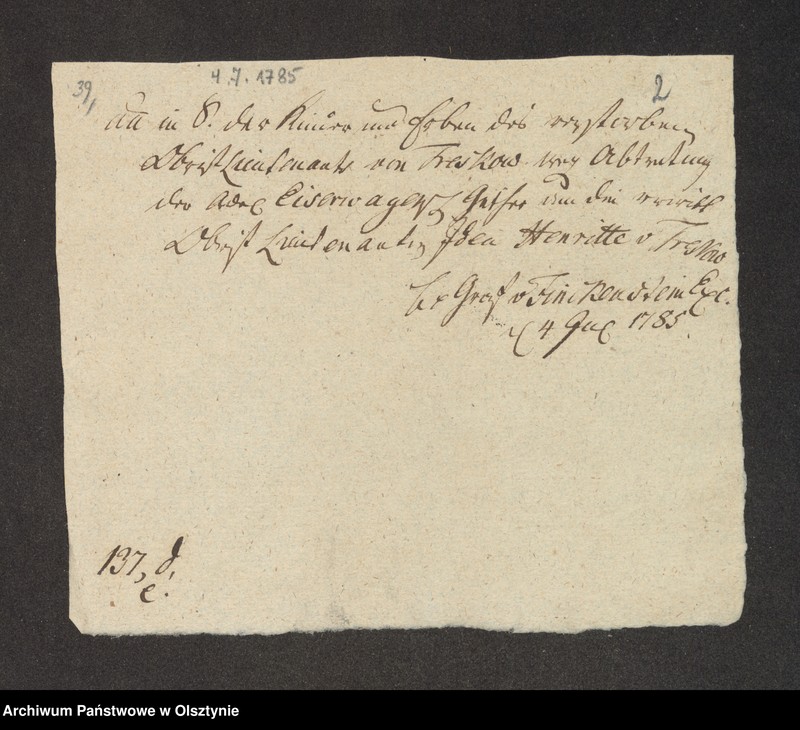 39/1
4.7.1785
2
in S. der Kinder und Erben des verstorbenen
Obrist Lieutenants von Treskow wegen Abtretung
der Adel Eiserwagenschen Güther an die verwitt
Obrist Lieutenantin Henriette v Treskow
Graf v Finckenstein Exc.
4 1785
137, d,
e.
Archiwum Państwowe w Olsztynie